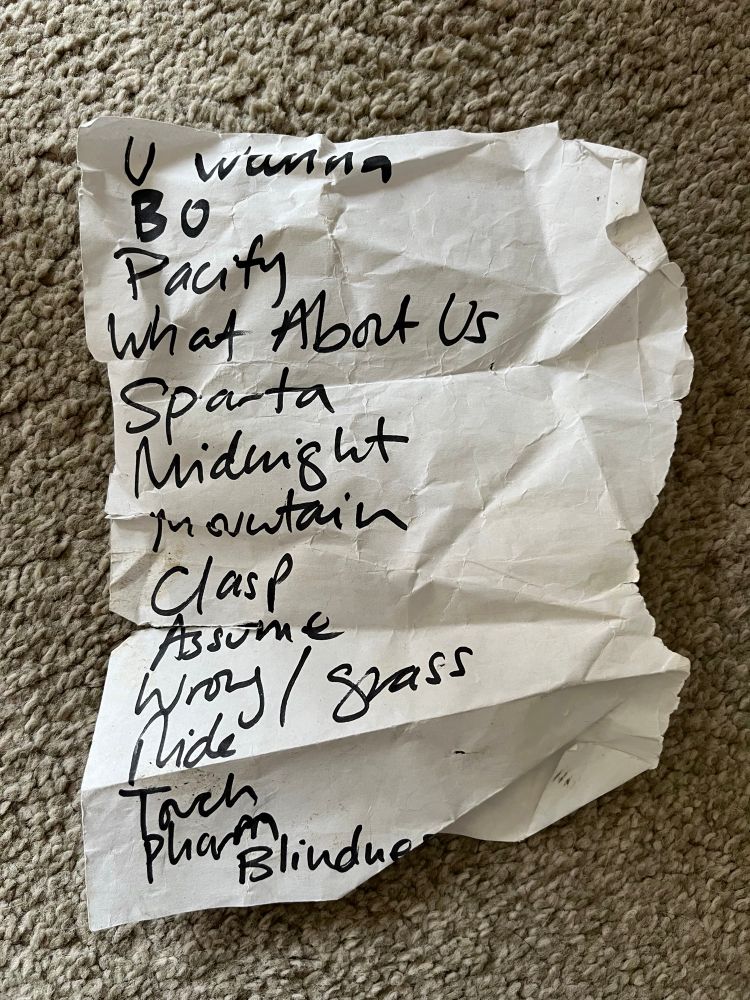 U wanna
BO
Pacify
What About Us
Sparta
Midnight
Mountain
Clasp
Assume
Wrong / grass
Ride
Touch
Pharm